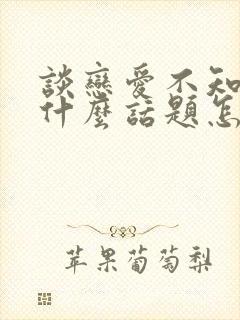 談戀愛不知
什麼話題怎
苹果葡萄梨